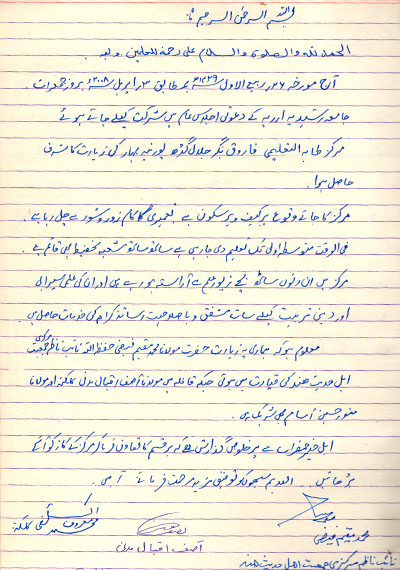 بسم الله الرحمن الرحيم
الحمد لله والصلوة والسلام على رحمة للعلمين وبعد
آج مورخہ ۲۶ ربیع الاول ۱۴۲۹ھ بمطابق ۳ اپریل ۲۰۰۸ء بروز جمعرات
جامعہ رشیدیہ ارریہ کے دعوتی اجلاس عام میں شرکت کیلئے جاتے ہوئے
مرکز طابہ التعلیمی فاروق نگر جلال گڑھ پورنیہ بہار کی زیارت کا شرف
حاصل ہوا۔
مرکز کا جائے وقوع پرکیف و پرسکون ہے۔ تعمیری کام زور و شور سے چل رہا ہے۔
فی الوقت متوسط اولی تک تعلیم دی جا رہی ہے ساتھ ساتھ شعبہ تحفیظ بھی قائم ہے۔
مرکز میں ان دنوں ساٹھ بچے زیور علم سے آراستہ ہو رہے ہیں اور ان کی علمی سیرابی
اور دینی تربیت کیلئے سات مشفق و باصلاحیت اساتذہ کرام کی خدمات حاصل ہیں
معلوم ہو کہ ہماری یہ زیارت حضرت مولانا محمد مقیم فیضی حفظہ اللہ نائب ناظم مرکزی جمعیت
اہل حدیث ہند کی قیادت میں ہوئی جبکہ قافلہ میں مولانا آصف اقبال مدنی کلکتہ اور مولانا
منور حسین آسام بھی شریک ہیں۔
اہل خیر حضرات سے پرخلوص گذارش ہے کہ ہر قسم کا تعاون فرما کر مرکز کے کاز کو آگے
بڑھائیں۔ اللہ ہم سبھوں کو توفیق مزید مرحمت فرمائے آمین۔
محمد مقیم فیضی
آصف اقبال مدنی
معروف سلفی کلکتہ
نائب ناظم مرکزی جمعیت اهل حدیث هند